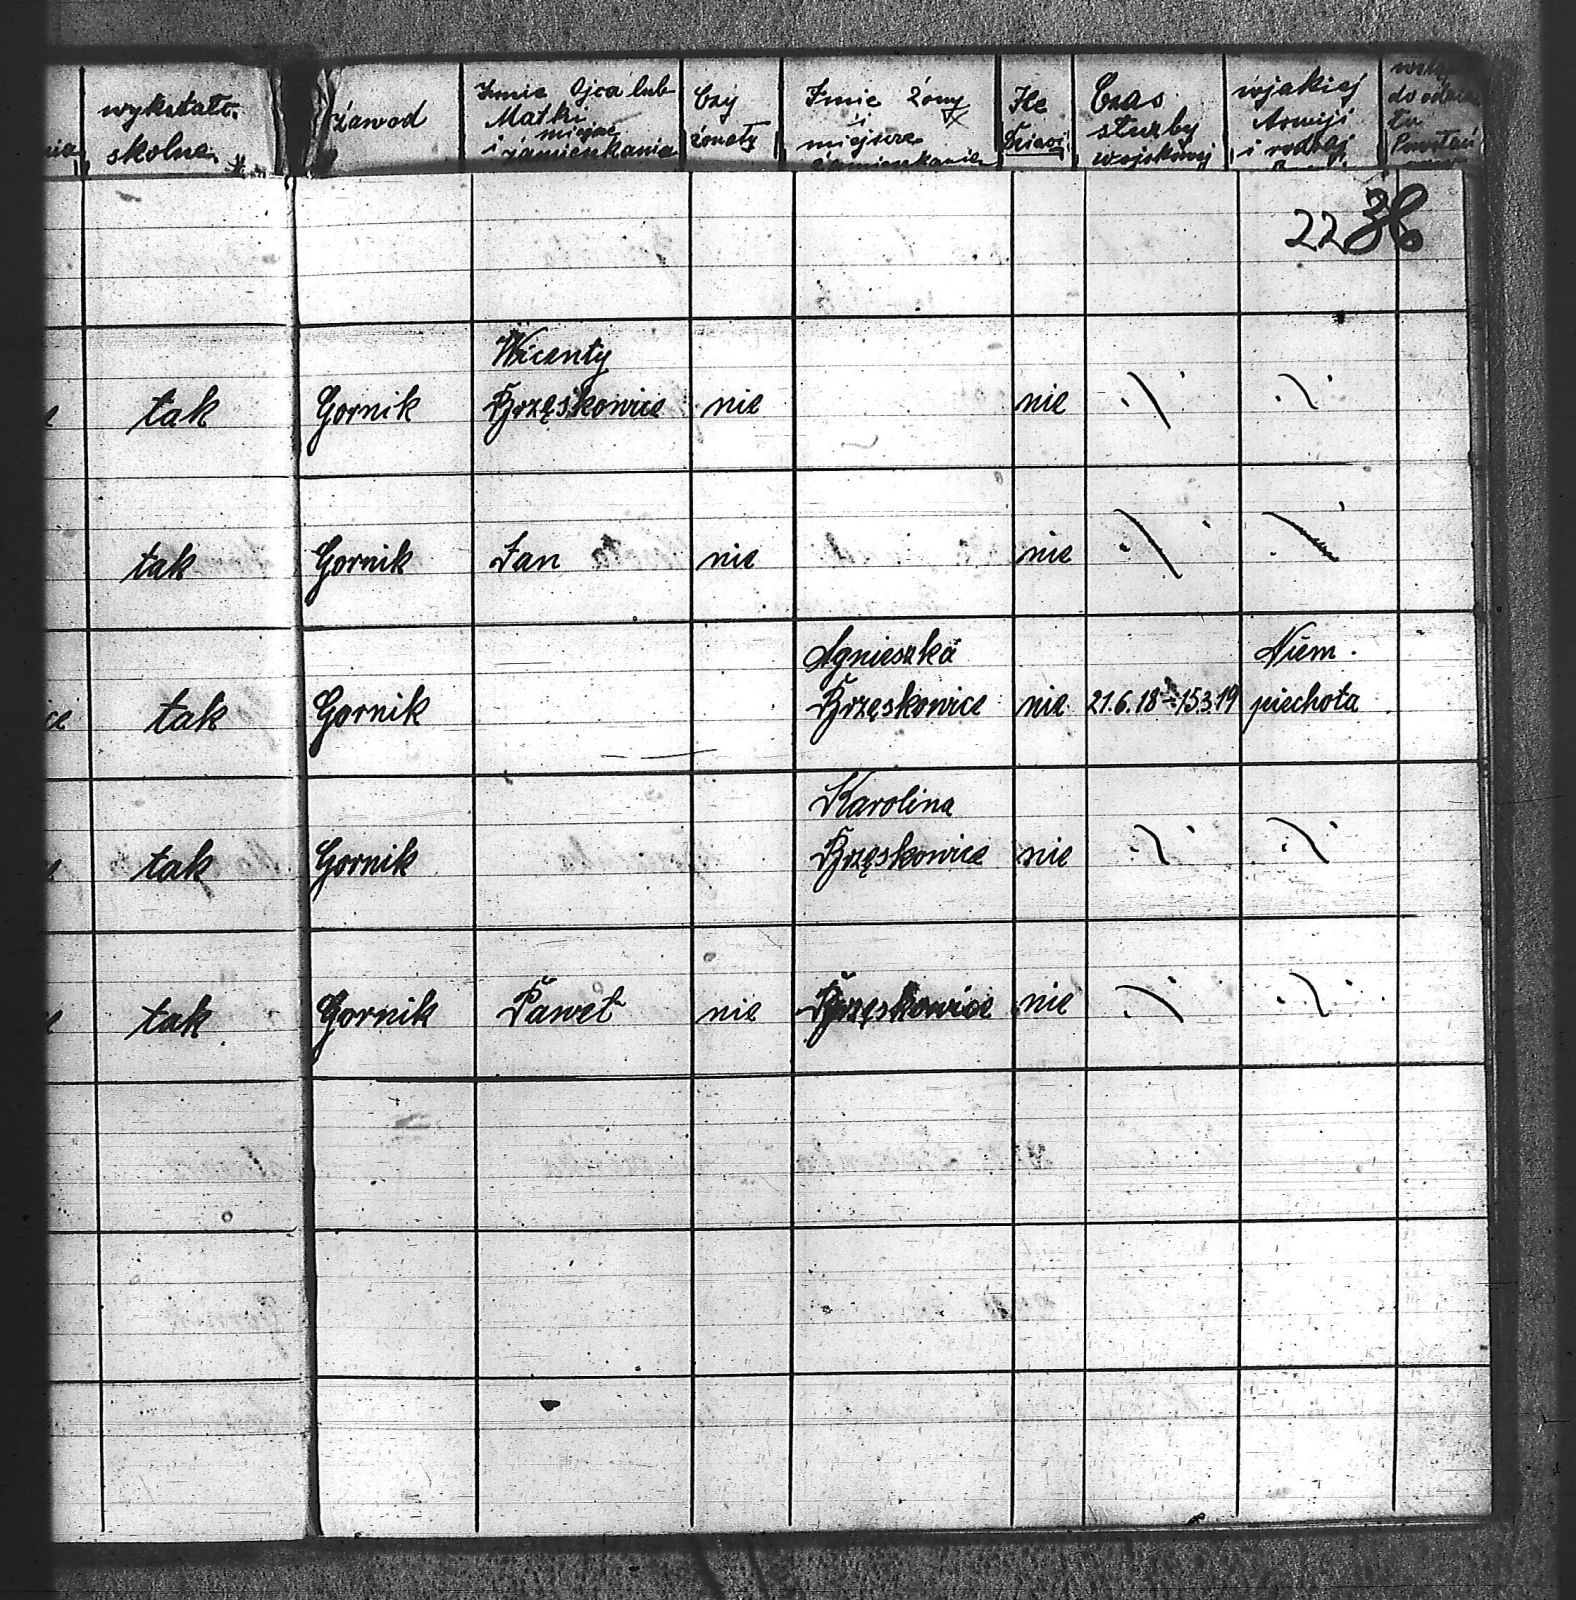 wykształc.
skolne
zawod
Imie Ojca lub
Matki
miejsc
i zamieszkania
Czy
żonaty
Imie Żony
i
miejsce
zamieszkania
Ile
Dzieci
Czas
służby
wojskowej
wjakiej
Armji
i rodzaj
do oddzia
łu
22 36
tak Gornik Wicenty
Brzęskowice nie nie ./. ./.
tak Gornik Jan nie nie ./. ./.
tak Gornik Agnieszka
Brzęskowice nie 21.6.18-15.3.19 Niem.
piechota
tak Gornik Karolina
Brzęskowice nie ./. ./.
tak Gornik Paweł nie Brzęskowice nie ./. ./.